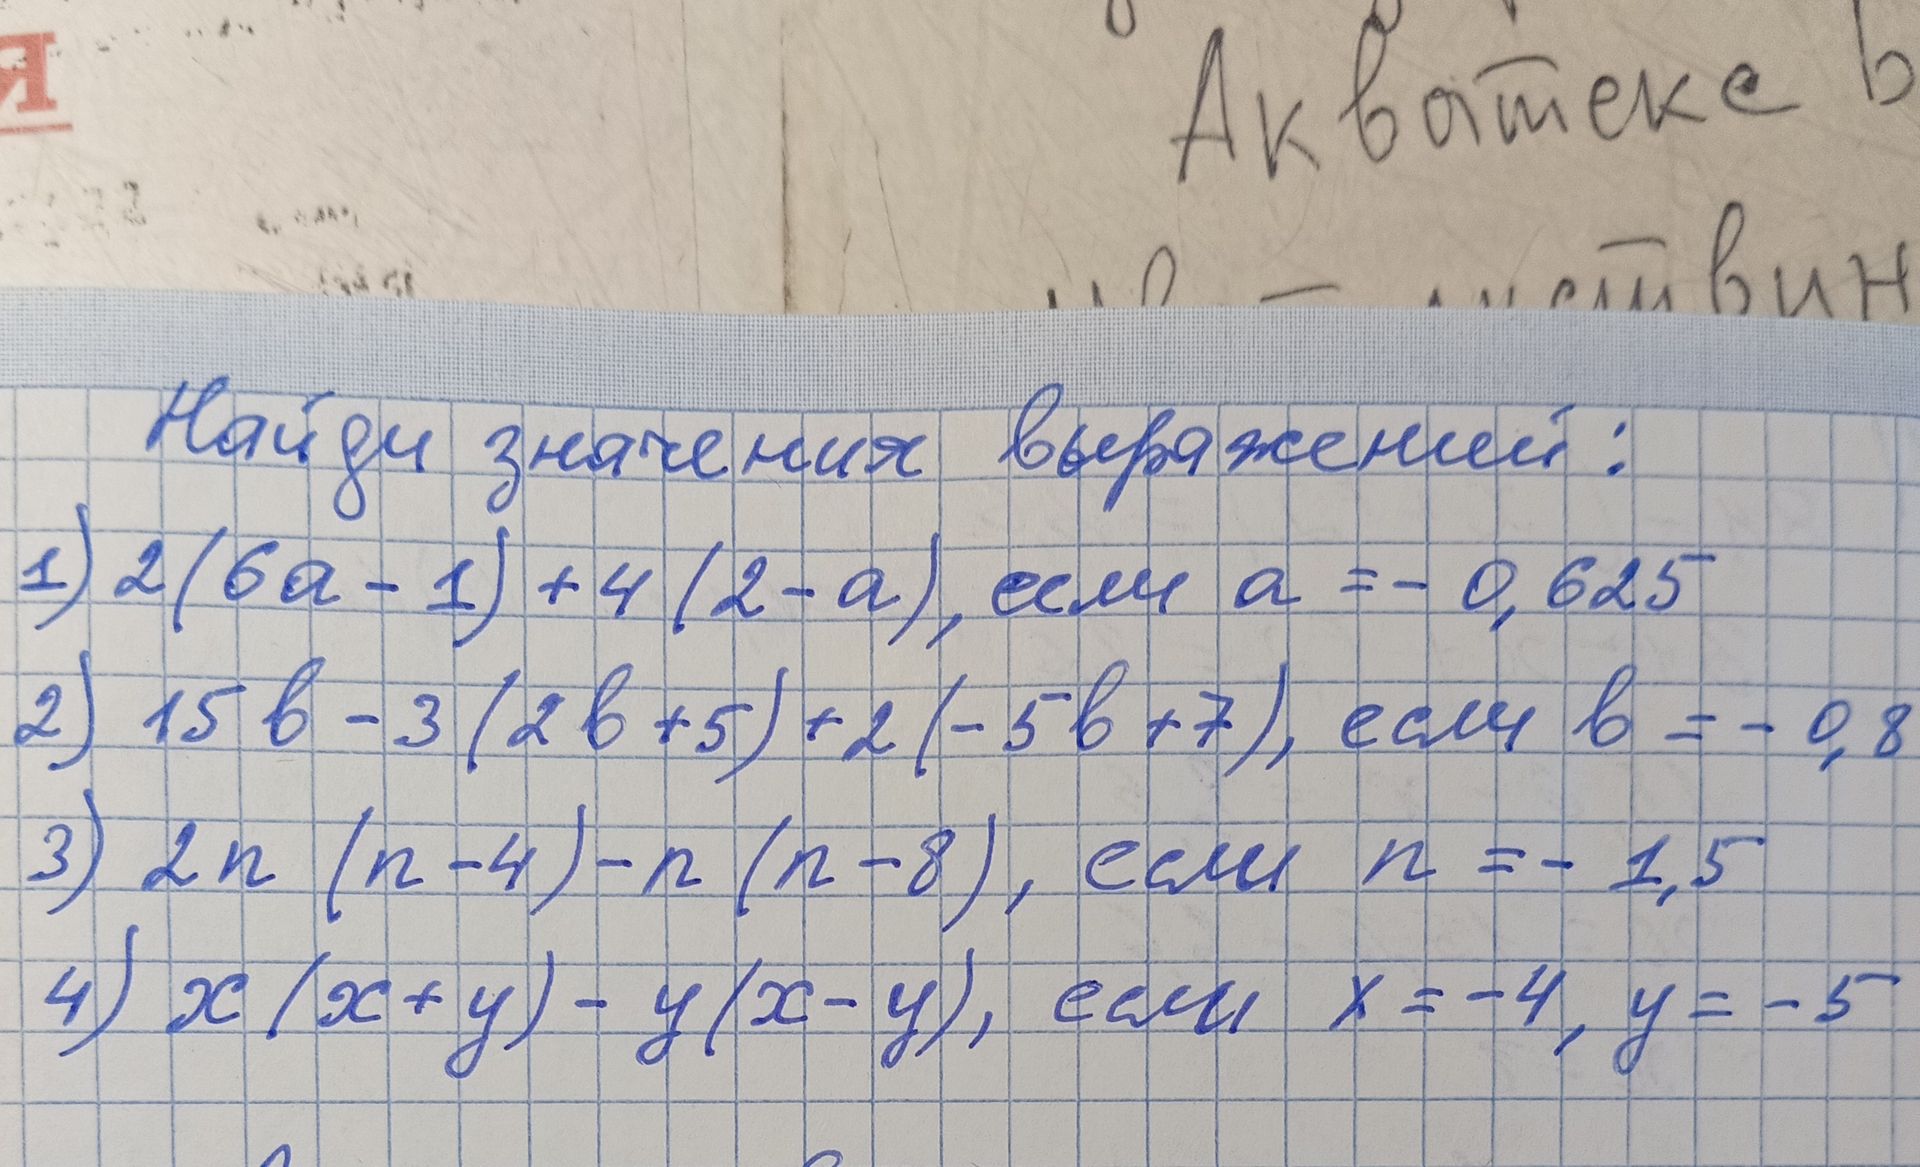 Я
Акватеке в
Найди значения выражений:
1) 2(6a - 1) + 4(2 - a), если a = - 0,625
2) 15в - 3(2в + 5) + 2(-5в + 7), если в = - 0,8
3) 2n (n - 4) - n (n - 8), если n = - 1,5
4) x(x + y) - y(x - y), если x = -4, y = -5